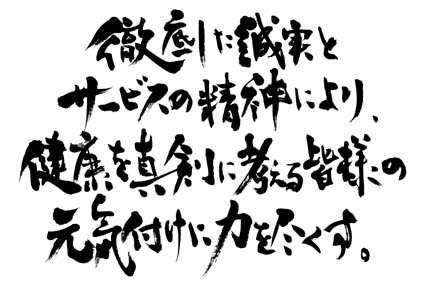 徹底した誠実と
サービスの精神により、
健康を真剣に考える皆様の
元気付けに力を尽くす。